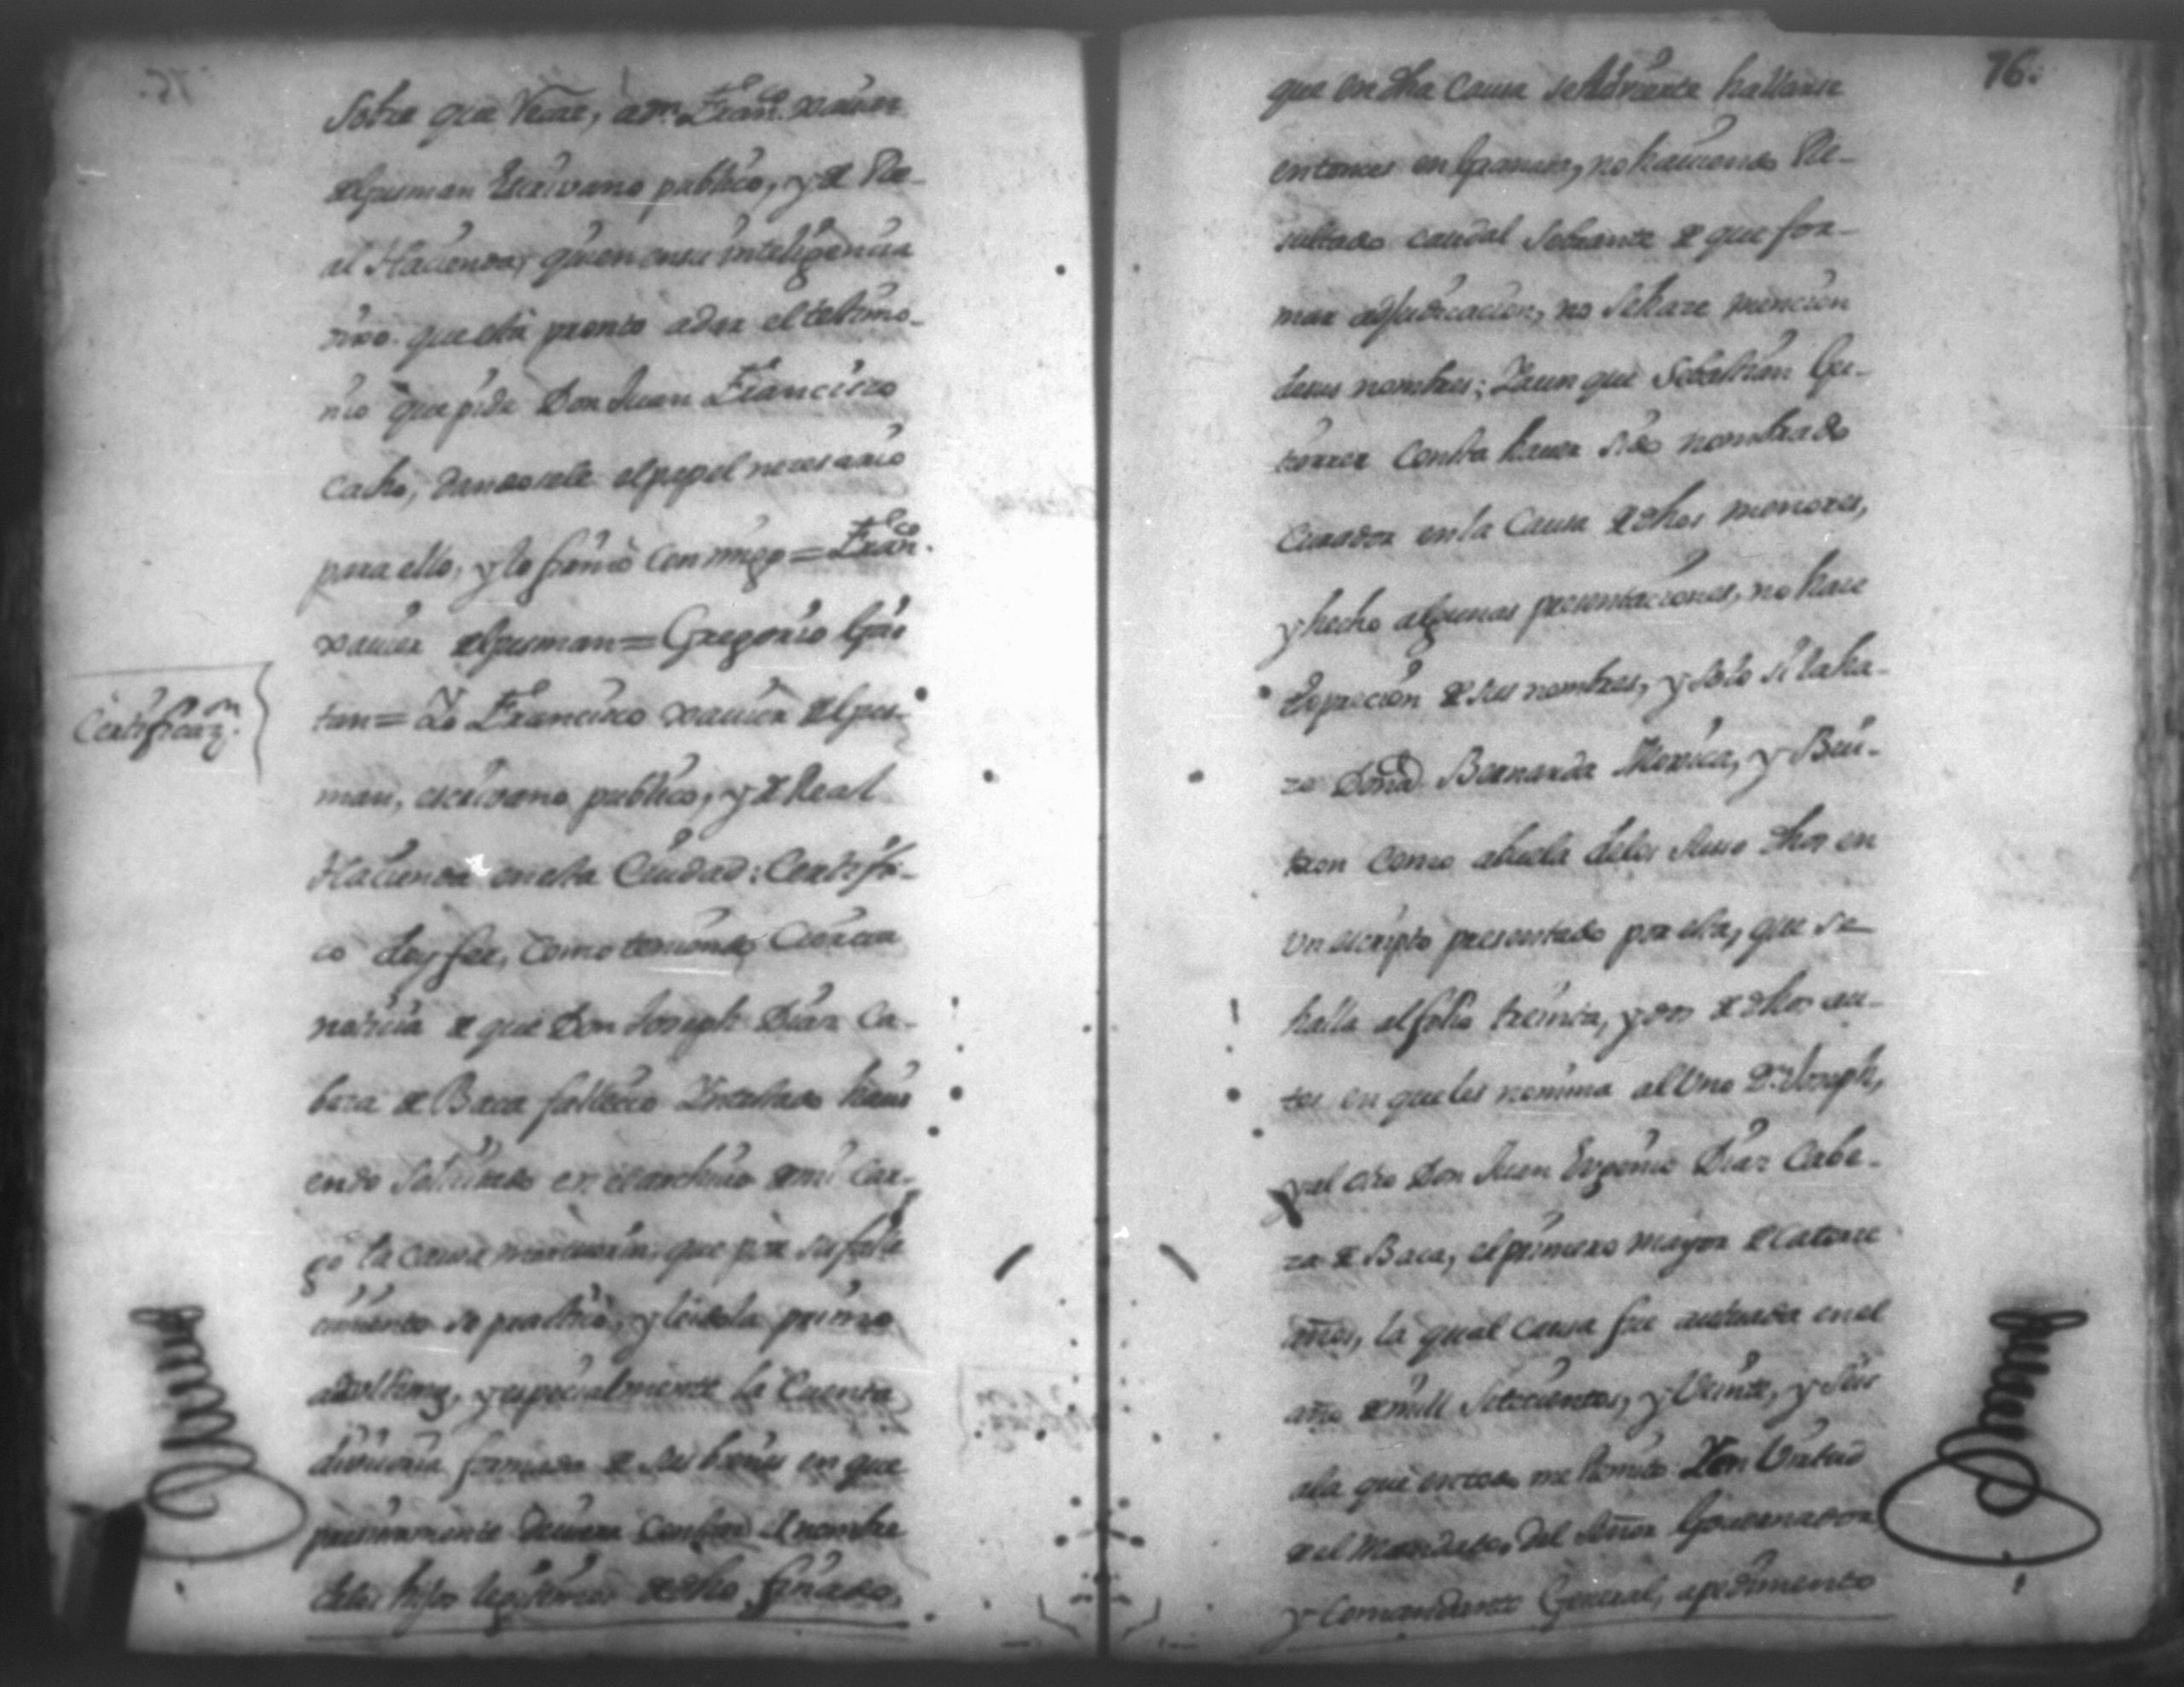 sobre que Vease, a Dn. Franco. Xauier
de Gusman Escriuano publico, y de Re-
al Hacienda, quien en su inteligencia
dixo que está pronto a dar el testimo-
nio que pide Don Juan Francisco
Cacho, dandosele el papel necesario
para ello, y lo firmó conmigo = Franco.
Xauier de Gusman = Gregorio Gai
tan = Yo Francisco Xauier de Gus-
man, escriuano publico, y de Real
Hacienda en esta Ciudad: Certifi-
co doy fee, como teniendo Cierta
noticia de que Don Joseph Diaz Ca-
beza de Baca fallecio Intestado haui
endo solicitado en el archiuo de mi Car-
go la causa mortuoria, que por su falle
cimiento se practicó, y leidola primo
ad vltimum, y especialmente la Cuenta
diuisoria formada de sus bienes en que
precisamente deuiera constar el nombre
de los hijos legitimos de dho finado,
Certificazn.
76.
que en dha Causa se Aduierte hallarse
entonces en Granada, no hauiendo Re-
sultado caudal sobrante de que for-
mar adjudicacion, no se haze mencion
de sus nombres; Y aunque Sebastian Gu-
tierrez Consta hauer sido nombrado
Curador en la Causa de dhos menores,
y hecho algunas presentaciones, no hace
Expresion de sus nombres, y solo si la ha-
ze Doña Bernarda Monica, y Bui-
tron como abuela de los suso dhos en
vn escripto presentado por esta, que se
halla al folio treinta, y dos de dhos au-
tos en que les nomina al Uno Dn. Joseph,
y al otro Don Juan Eugenio Diaz Cabe-
za de Baca, el primero mayor de catorce
años, la qual causa fue actuada en el
año de mill Setecientos, y Veinte, y Seis
a la que en todo me Remito: Y en Virtud
de el mandato, del Señor Gouernador
y Comandante General, a pedimento